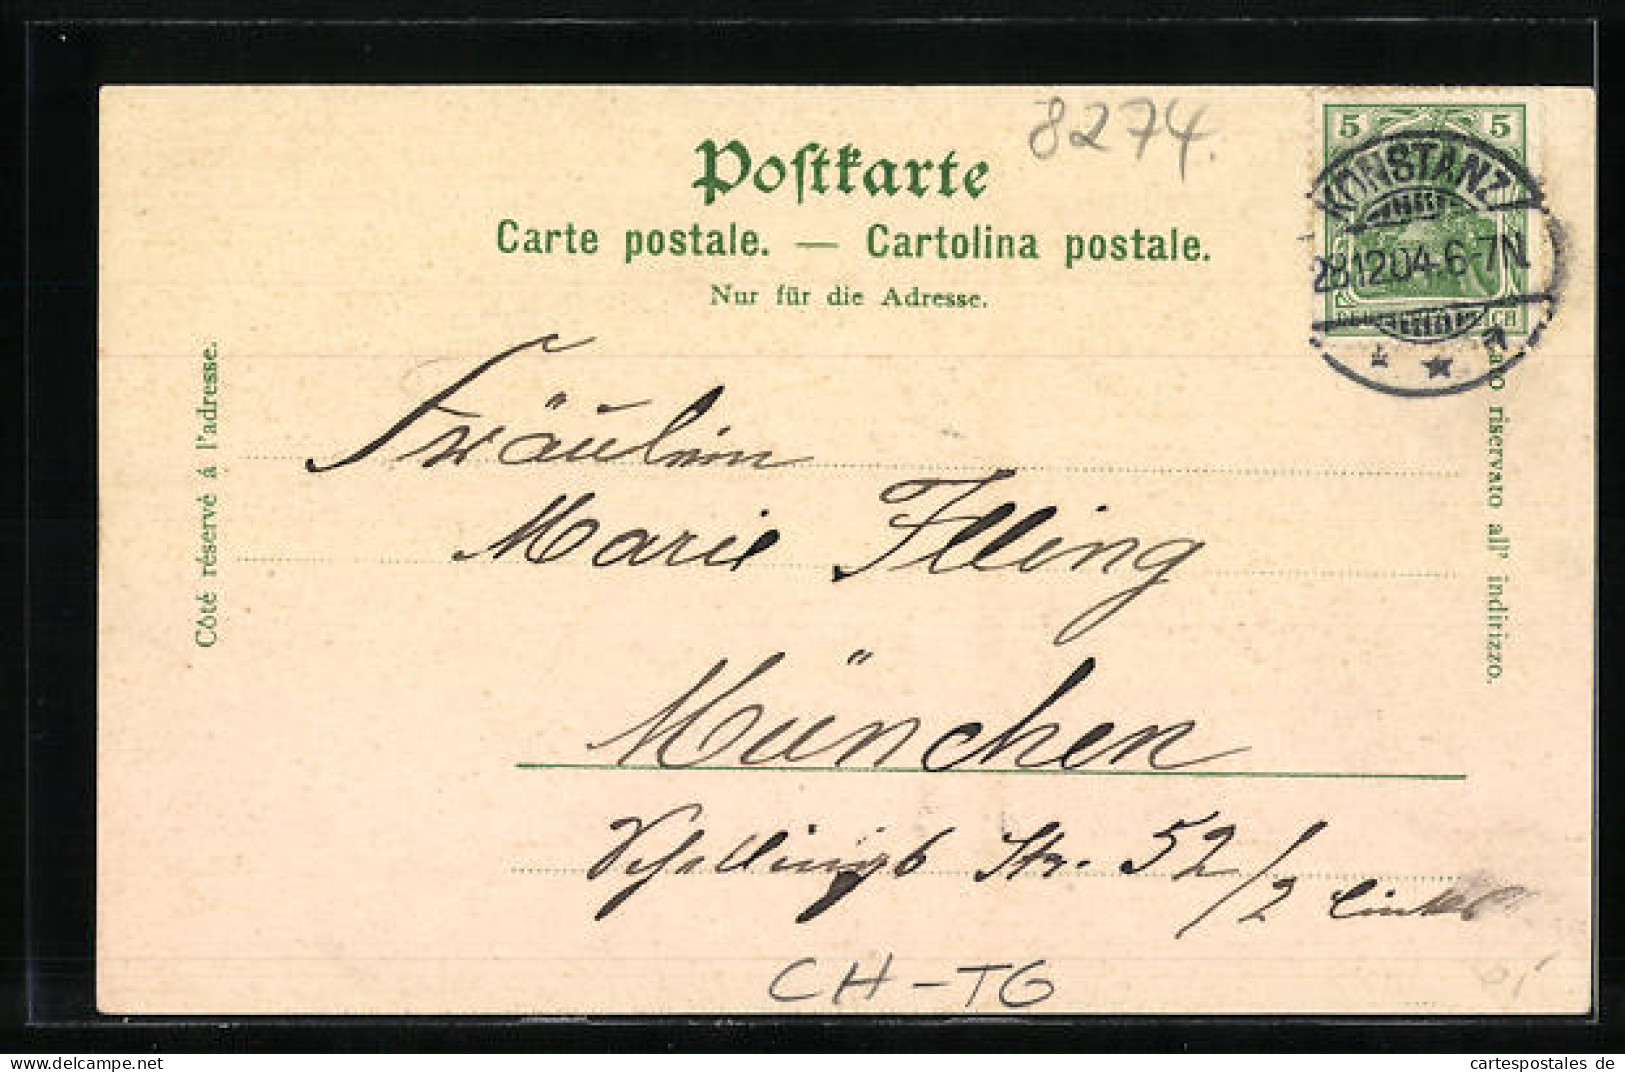 8274.
Postkarte
Carte postale. — Cartolina postale.
Nur für die Adresse.
5 5
KONSTANZ
28.12.04.6-7N
Côté réservé á l'adresse.
riservato all' indirizzo.
Fräulein
Marie Illing
München
Schellings Str. 52/2 links
CH-TG
cartespostales de